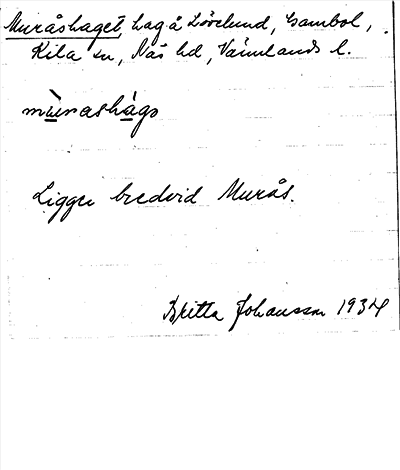 Muråshaget, hag å Lövlund, Gambol,
Kila sn, Näs hd, Värmlands l.
mùrashàgə
Ligger bredvid Murås.
Britta Johansson 1934